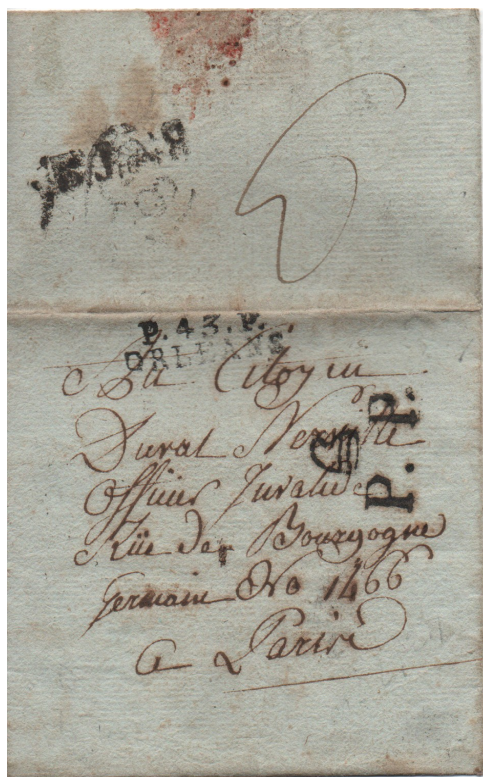 6
P.43.P.
ORLEANS
Au Citoyen
Duval Nerville
Officier Invalide
P.P.
Rüe de Bourgogne
Germain No 1466
a Paris